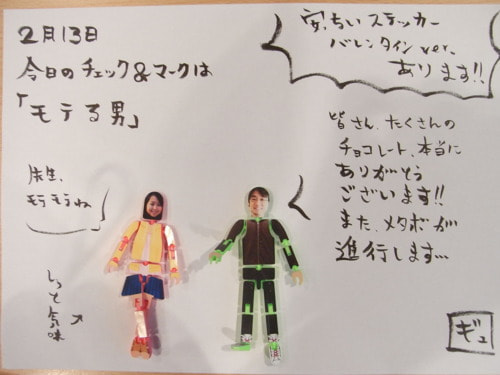 2月13日
今日のチェック&マークは
「モテる男」
安っちいステッカー
バレンタイン ver.
あります!!
皆さん、たくさんの
チョコレート、本当に
ありがとう
ございます!!
また、メタボが
進行します…
先生、
モテモテね
しっと気味
ギュ